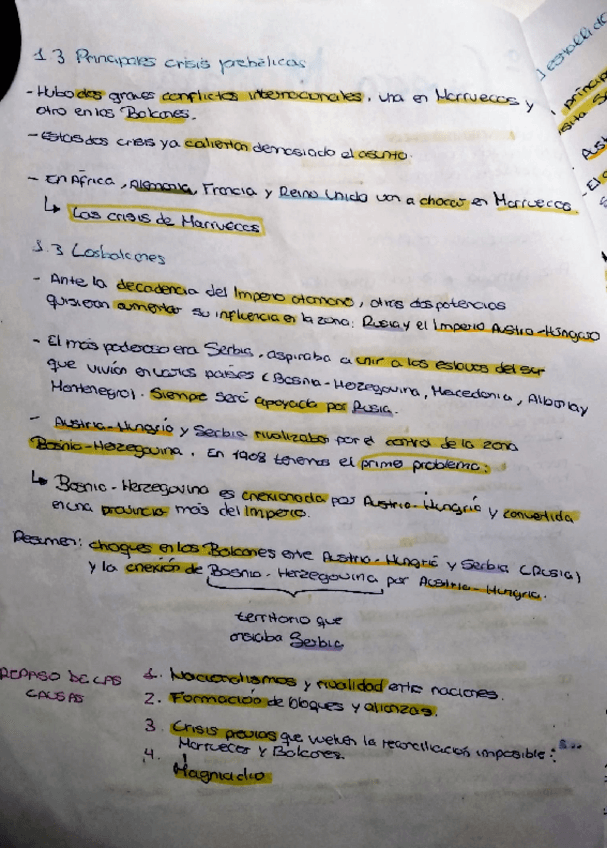 1.3 Principales crisis prebélicas
- Hubo dos graves conflictos internacionales, una en Marruecos y
otro en los Balcanes.
- Estas dos crisis ya calientan demasiado el asunto.
- En África, Alemania, Francia y Reino Unido van a chocar en Marruecos.
↳ Las crisis de Marruecos
1.3 Los balcanes
- Ante la decadencia del Imperio otomano, otras dos potencias
quisieron aumentar su influencia en la zona: Rusia y el Imperio Austro-Húngaro
- El más poderoso era Serbia, aspiraba a unir a los eslavos del sur
que vivían en varios países (Bosnia-Herzegovina, Macedonia, Albania y
Montenegro). Siempre será apoyada por Rusia.
- Austria-Hungría y Serbia rivalizaban por el control de la zona
Bosnia-Herzegovina. En 1908 tenemos el primer problema:
↳ Bosnia-Herzegovina es anexionada por Austria-Hungría y convertida
en una provincia más del Imperio.
Resumen: choques en los Balcanes entre Austria-Hungría y Serbia (Rusia)
y la anexión de Bosnia-Herzegovina por Austria-Hungría.
territorio que
ansiaba Serbia
REPASO DE LAS
CAUSAS
1. Nacionalismos y rivalidad entre naciones.
2. Formación de bloques y alianzas.
3. Crisis previas que vuelven la reconciliación imposible:
Marruecos y Balcanes.
4. Magnicidio